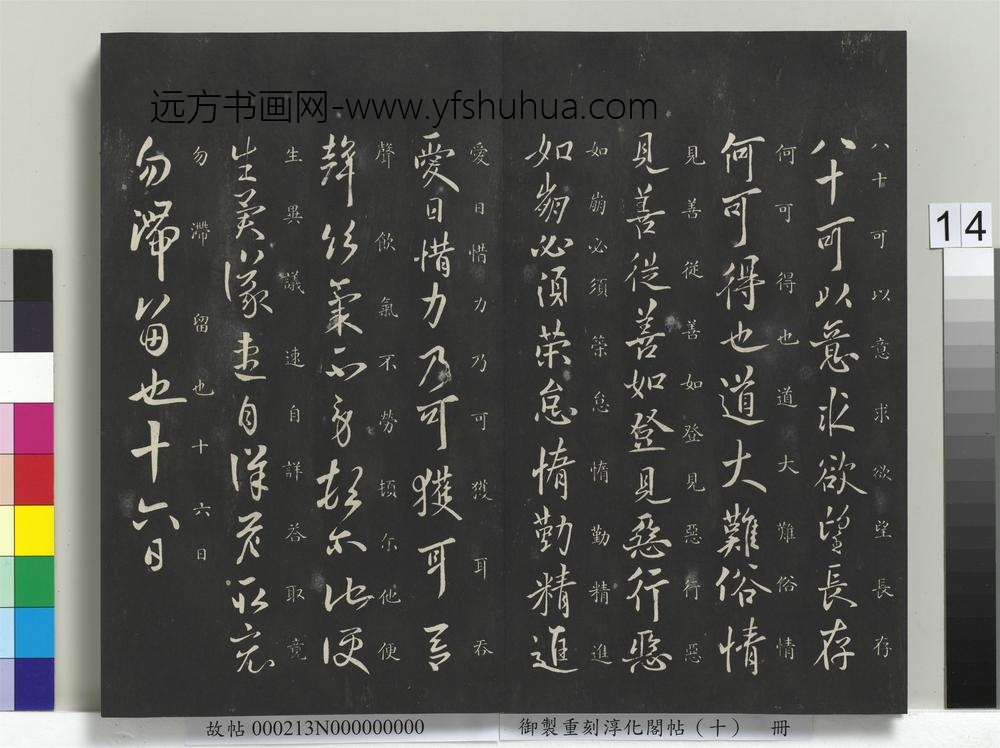 远方书画网-www.yfshuhua.com
八十可以意求欲望長存
八十可以意求欲望長存
何可得也道大難俗情
何可得也道大難俗情
見善從善如登見惡行惡
見善從善如登見惡行惡
如崩必須策怠惰勤精進
如崩必須榮怠惰勤精進
愛日惜力乃可獲耳吞
愛日惜力乃可獲耳吞
聲飲氣不勞頓尓他便
聲飲氣不勞頓尓他便
生異議速自詳荅取竟
生異議速自詳荅取竟
勿滯留也十六日
勿滯留也十六日
14
故帖 000213N000000000
御製重刻淳化閣帖（十） 冊